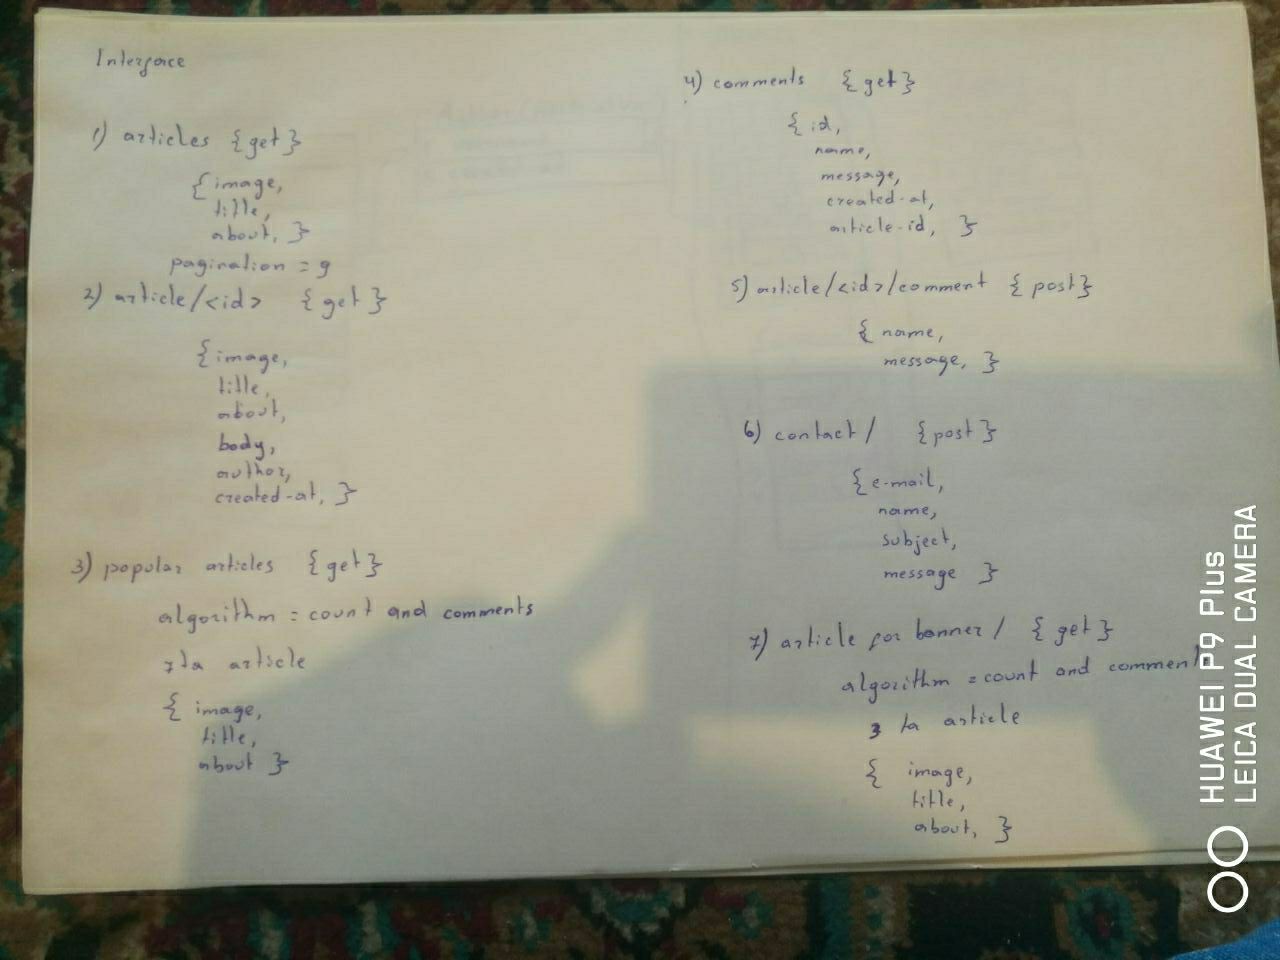 Interface
1) articles {get}
{image,
title,
about, }
pagination = 9
2) article/<id> {get}
{image,
title,
about,
body,
author,
created-at, }
3) popular articles {get}
algorithm = count and comments
7 ta article
{ image,
title,
about }
4) comments {get}
{ id,
name,
message,
created-at,
article-id, }
5) article/<id>/comment {post}
{ name,
message, }
6) contact/ {post}
{ e-mail,
name,
subject,
message }
7) article for banner/ {get}
algorithm = count and comment
3 ta article
{ image,
title,
about, }
HUAWEI P9 Plus
LEICA DUAL CAMERA